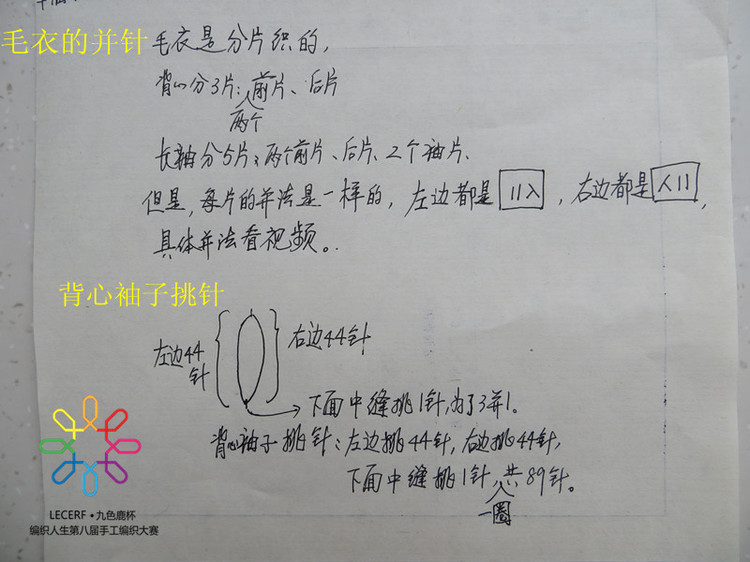 毛衣的并针
毛衣是分片织的,
背心分3片:前片、后片
两个
长袖分5片:两个前片、后片、2个袖片、
但是,每片的并法是一样的,左边都是||入,右边都是人||,
具体并法看视频。
背心袖子挑针
左边44针
右边44针
下面中缝挑1针,为了3并1。
背心袖子挑针:左边挑44针,右边挑44针,
下面中缝挑1针,共89针。
一圈
LECERF•九色鹿杯
编织人生第八届手工编织大赛